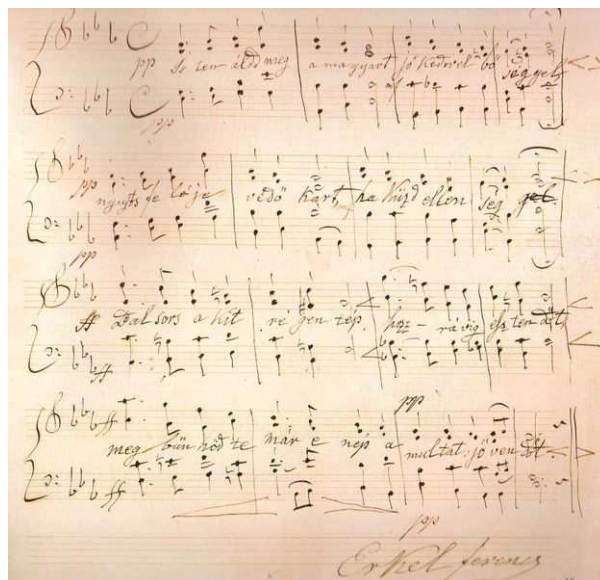 pp Is ten áldd meg a magyart jó kedvvel bő séggel,
pp
pp nyujts fe léje védő kart, ha küzd ellen ség gel
pp
ff Bal sors a kit ré gen tép hoz - rá víg esz ten dőt,
ff
pp
ff meg bűn hőd te már e nép a multat jö ven dőt
ff
pp
Erkel ferencz